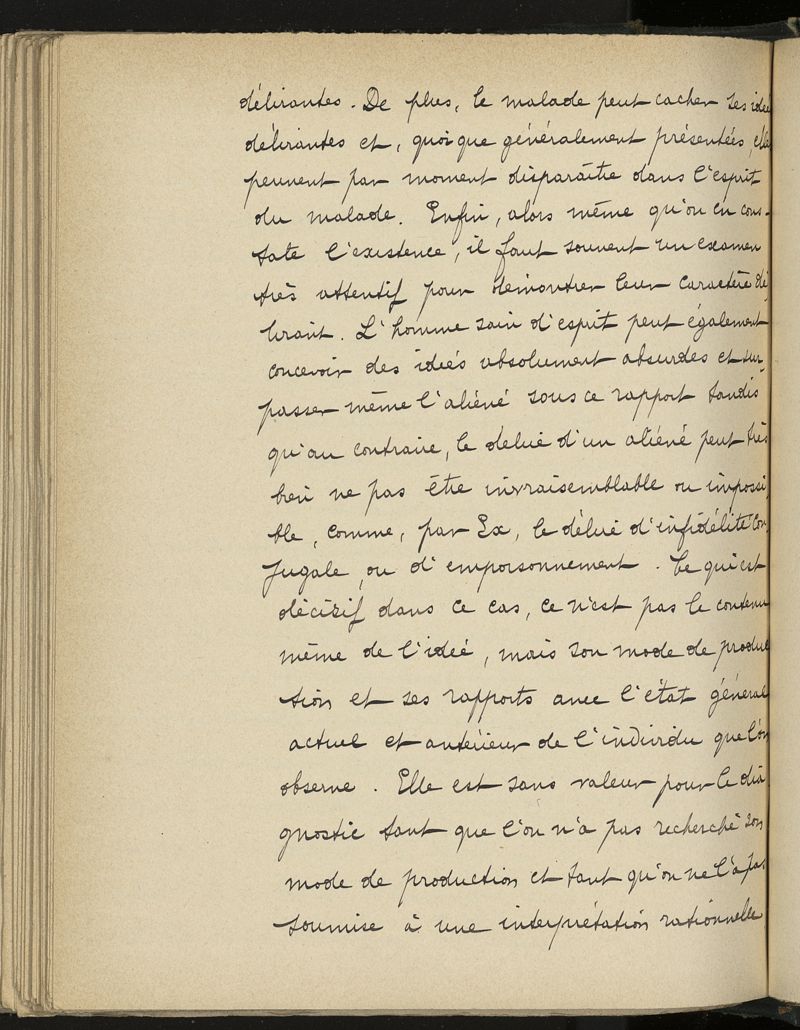 délirantes. De plus, le malade peut cacher ses idées
délirantes et, quoique généralement présentées, elles
peuvent par moment disparaître dans l'esprit
du malade. Enfin, alors même qu'on en cons-
tate l'existence, il faut souvent un examen
très attentif pour démontrer leur caractère dé
lirant. L'homme sain d'esprit peut également
concevoir des ideés absolument absurdes et sur-
passer même l'aliéné sous ce rapport tandis
qu'au contraire, le délire d'un aliéné peut très
bein ne pas être invraisemblable ou impossi
ble, comme, par Ex, le délire d'infidélité con-
jugale, ou d'empoisonnement. Ce qui est
décizif dans ce cas, ce n'est pas le contenu
même de l'ideé, mais son mode de produc
tion et ses rapports avec l'état général
actuel et antérieur de l'individu que l'on
observe. Elle est sans valeur pour le dia
gnostic tant que l'on n'a pas recherché son
mode de production et tant qu'on ne l'a pas
soumise à une interprétation rationnelle